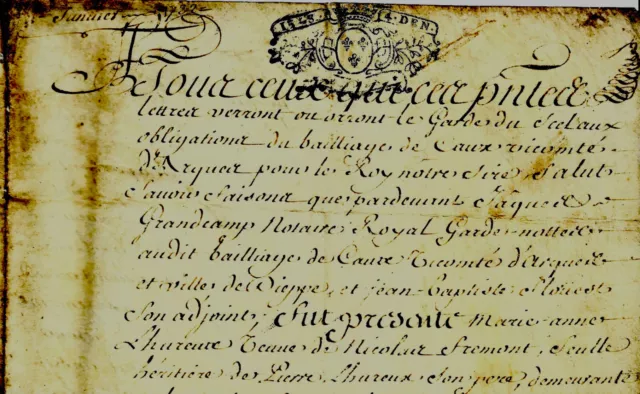 Janvier
14 DEN.
A Tous ceux qui ces pntes
lettres verront ou orront le Garde du Scel aux
obligations du bailliage de Caux vicomté
d'Arques pour le Roy notre Sire, Salut
Savoir faisons que pardevant Jaques
Grandcamp Notaire Royal Garde-nottes
audit bailliage de Caux Vicomté d'Arques
et ville de Dieppe, et Jean Baptiste
Son adjoint, fut presente Marie anne
Lhureux Veuve de Nicolas fremont, Seulle
héritière de Pierre Lhureux Son pere, demeurante